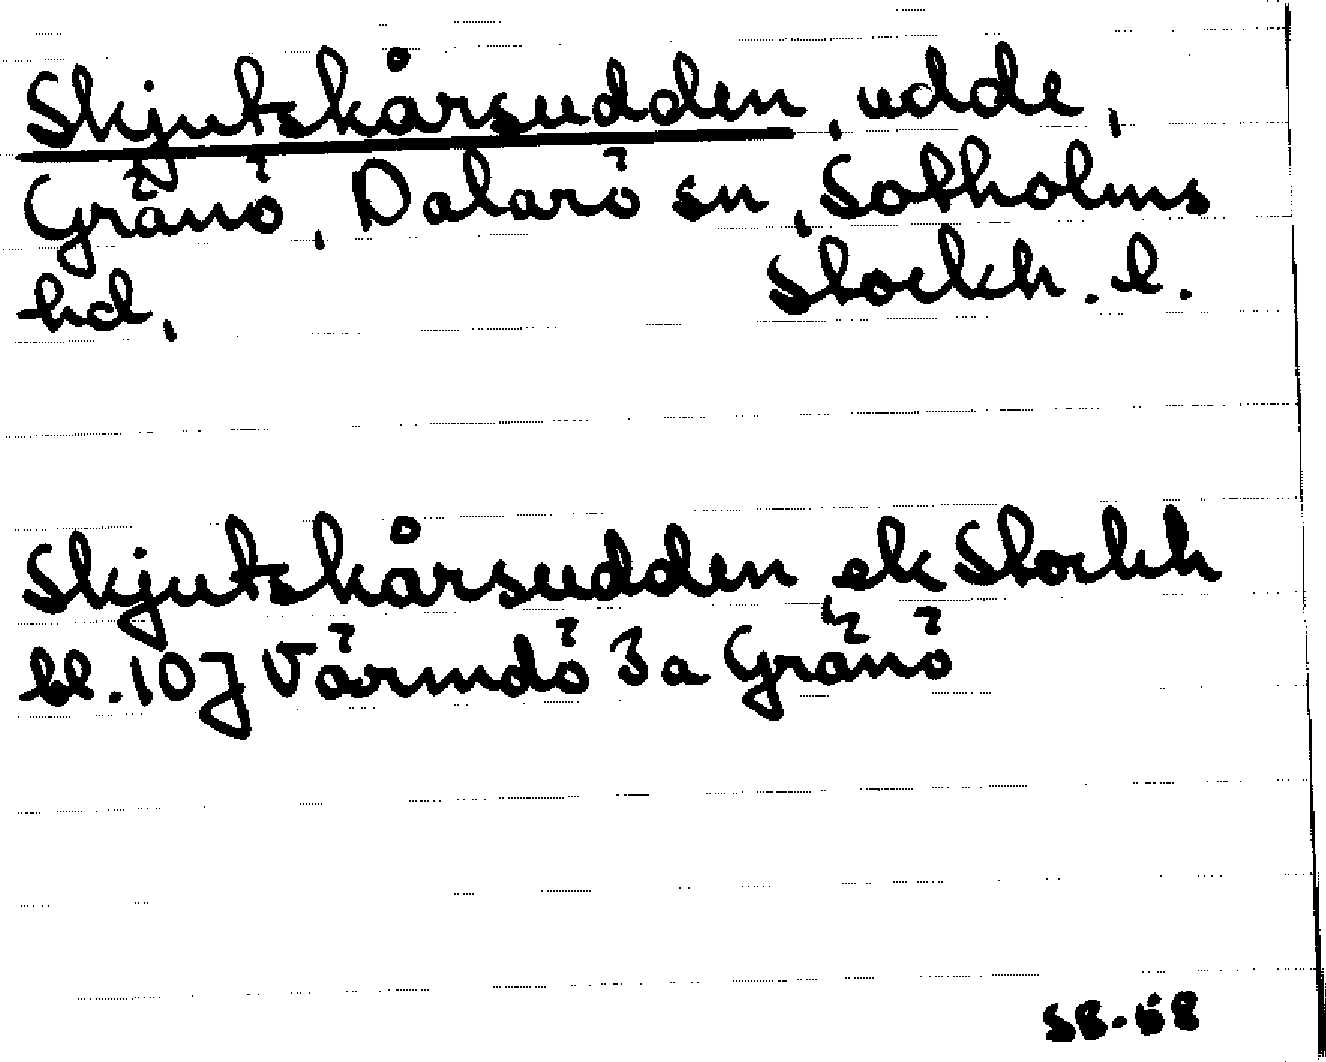 Skjutskårsudden, udde,
Gränö, Dalarö sn, Sotholms
hd, Stockh. l.
Skjutskårsudden ek Stockh
bl. 10J Värmdö 3a Gränö
58-68